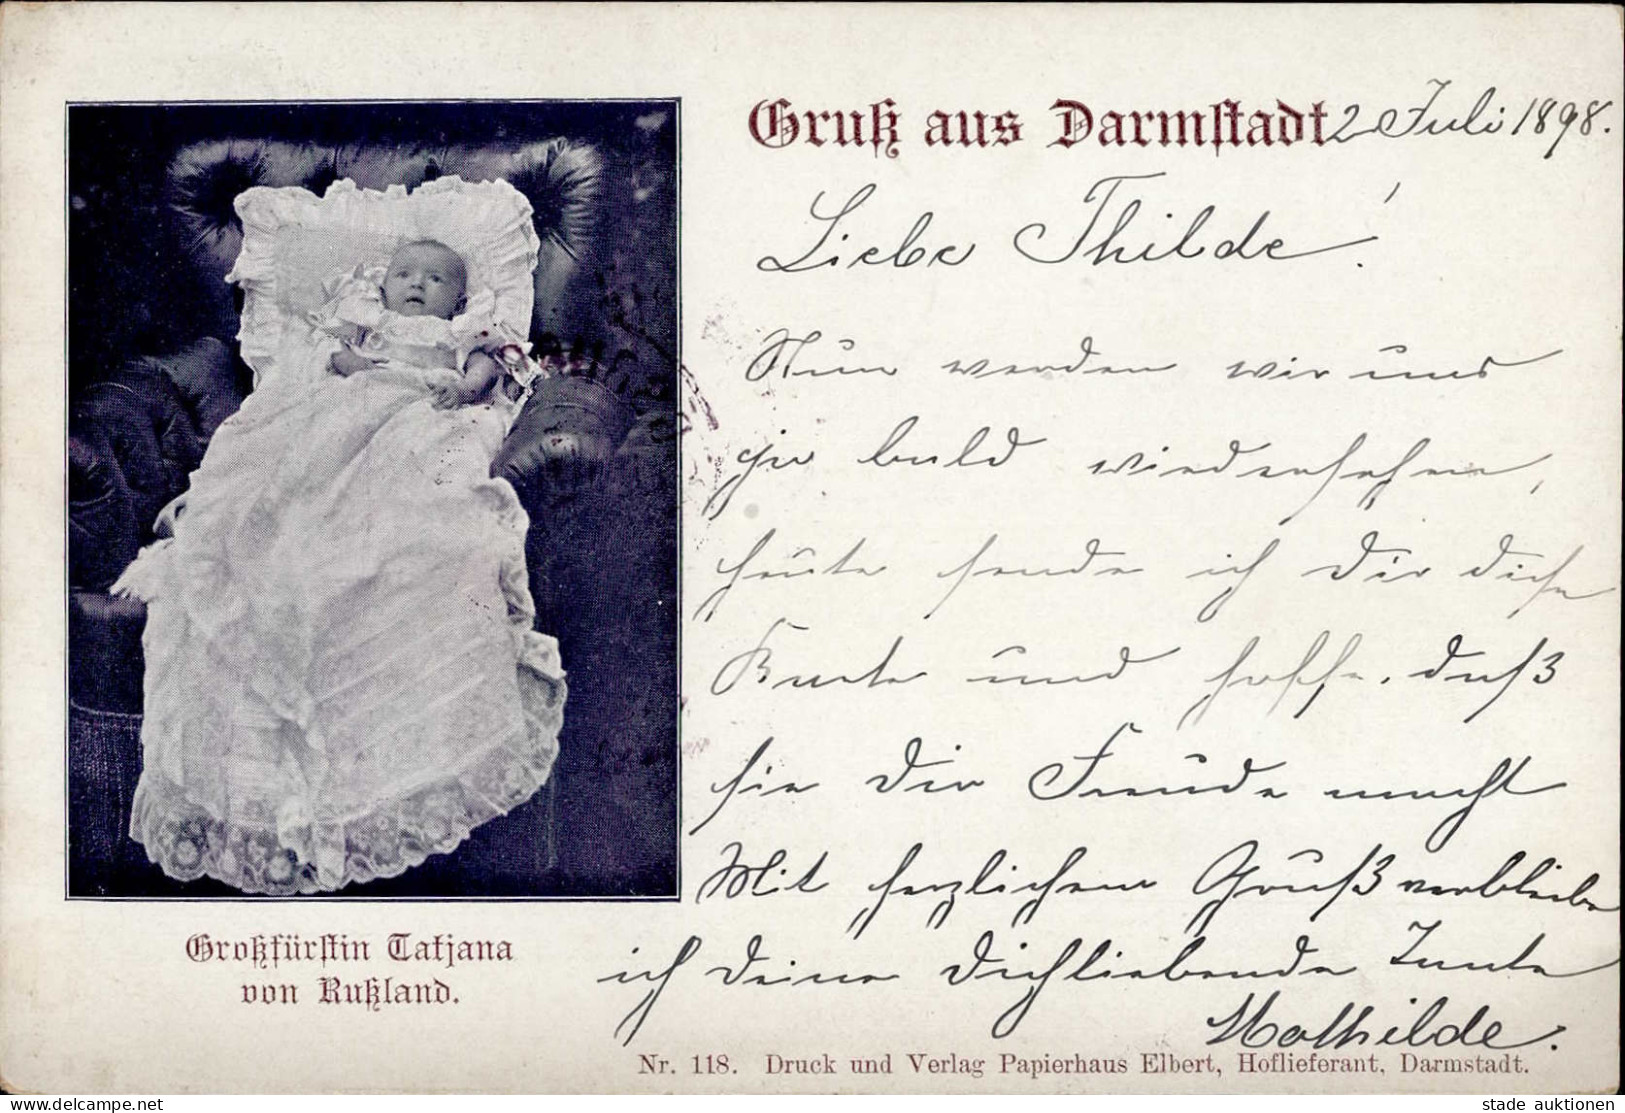 Gruß aus Darmstadt 2 Juli 1898.
Liebe Thilde!
Nun werden wir uns
ja bald wiedersehen,
heute sende ich Dir diese
Karte und hoffe, daß
sie Dir Freude macht
Mit herzlichem Gruß verbleibe
ich Deine Dichliebende Tante
Mathilde.
Großfürstin Tatjana
von Rußland.
Nr. 118. Druck und Verlag Papierhaus Elbert, Hoflieferant, Darmstadt.
delcampe.net
stade auktionen